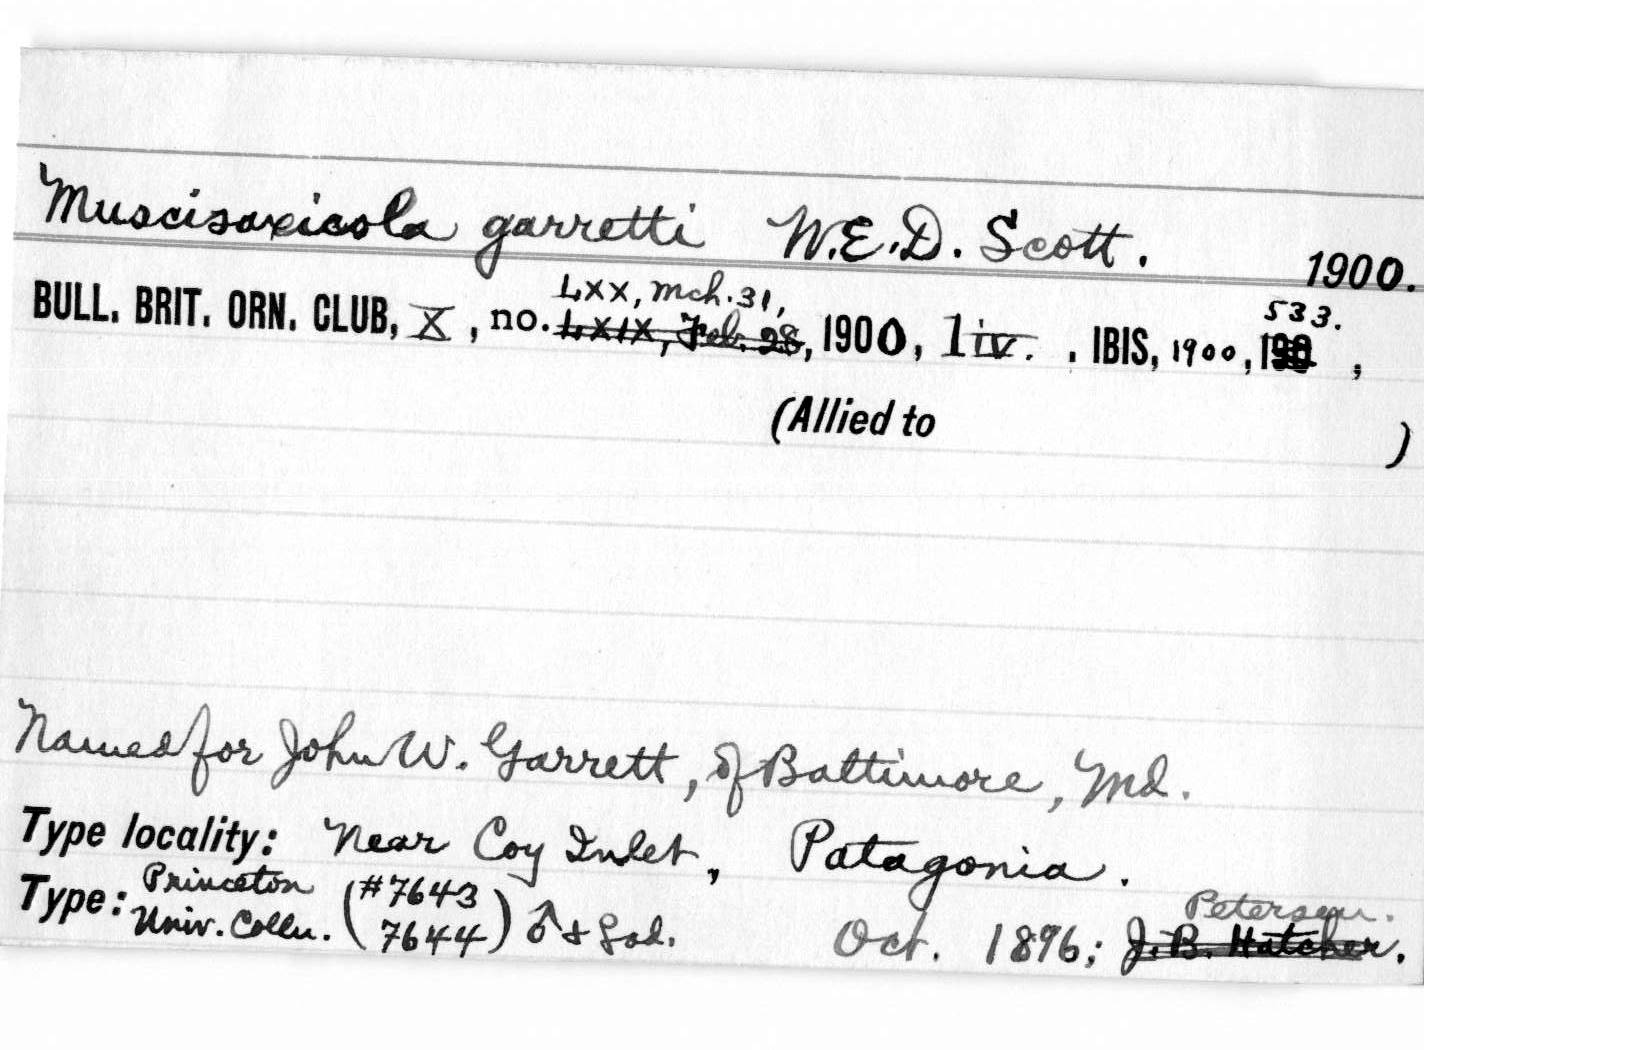 Muscisaxicola garretti W.E.D. Scott. 1900.
LXX, Mch. 31, 533.
BULL. BRIT. ORN. CLUB, X, no. LXIX, Feb. 28, 1900, liv. . IBIS, 1900, ,
(Allied to )
Named for John W. Garrett, of Baltimore, Md.
Type locality: Near Coy Inlet, Patagonia.
Type: Princeton Univ. Colln. (#7643 7644) ♂ & Oct. 1896; J. B. Hatcher. Peterson.